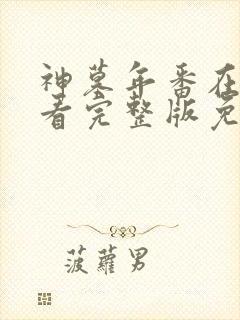 神墓年番在
看完整版免
菠萝男